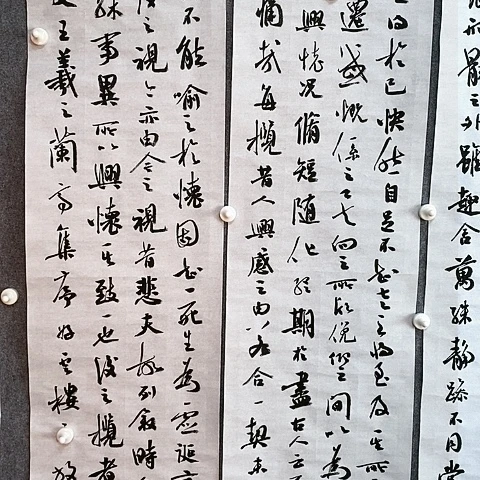 形骸之外雖趣舍萬殊靜躁不同當
得於己快然自足不知老之將至及其所
遷感慨係之矣向之所欣俛仰之間以為
興懷況脩短隨化終期於盡古人云
痛哉每攬昔人興感之由若合一契未
不能喻之於懷固知一死生為一虛誕齊
後之視今亦由今之視昔悲夫故列敘時
殊事異所以興懷其致一也後之攬者
王羲之蘭亭集序於雲樓